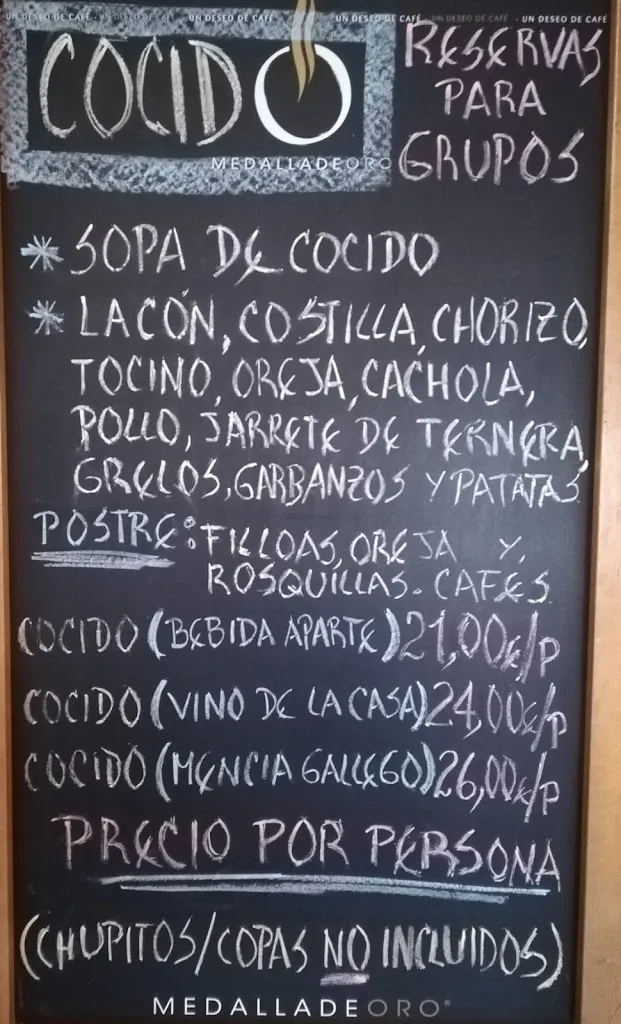 UN DESEO DE CAFÉ · UN DESEO DE CAFÉ · UN DESEO DE CAFÉ · UN DESEO DE CAFÉ · UN DESEO DE CAFÉ
COCIDO
MEDALLADEORO
RESERVAS
PARA
GRUPOS
* SOPA DE COCIDO
* LACÓN, COSTILLA, CHORIZO,
TOCINO, OREJA, CACHOLA,
POLLO, JARRETE DE TERNERA,
GRELOS, GARBANZOS Y PATATAS
POSTRE: FILLOAS, OREJA Y
ROSQUILLAS. CAFES
COCIDO (BEBIDA APARTE) 21,00€/P
COCIDO (VINO DE LA CASA) 24,00€/P
COCIDO (MENCIA GALLEGO) 26,00€/P
PRECIO POR PERSONA
(CHUPITOS/COPAS NO INCLUIDOS)
MEDALLADEORO®